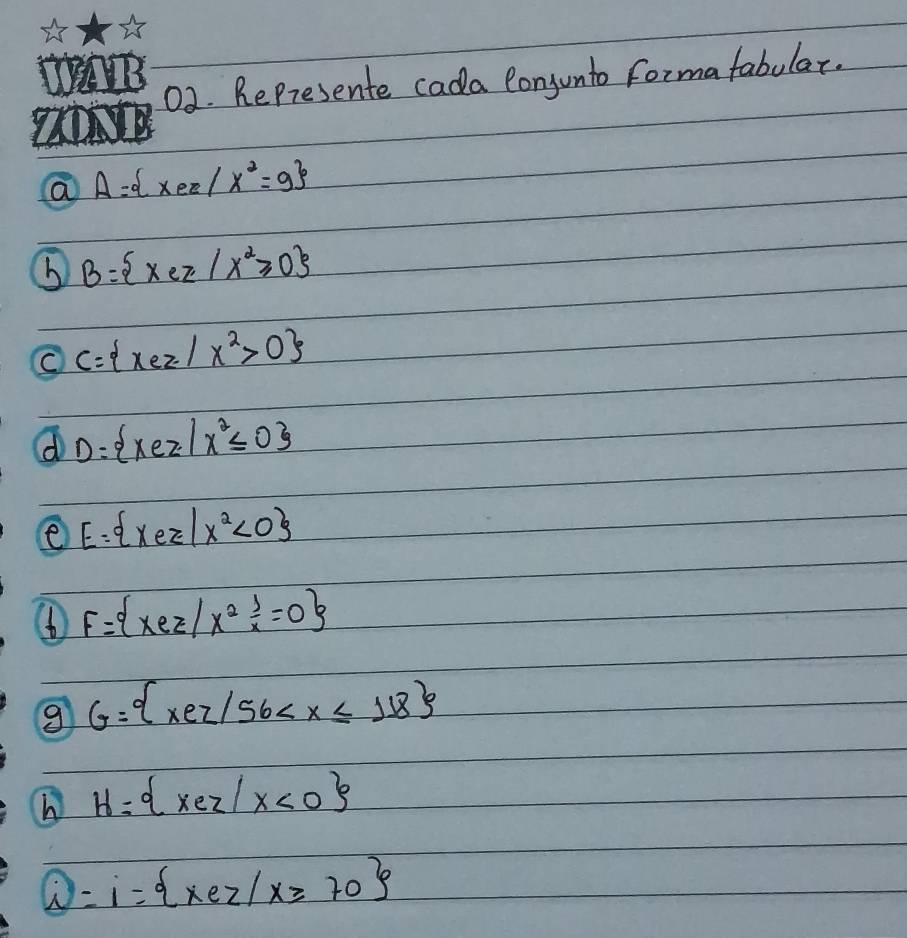 WAR
ZONE
02. Represente cada Conjunto forma tabular.
a A={xez/x²=9}
b B={xez/x²≥0}
c C={xez/x²>0}
d D={xez/x²≤0}
e E={xez/x²<0}
f F={xez/x² 1/x=0}
g G={xez/56<x≤118}
h H={xez/x<0}
i - i={xez/x≥70}